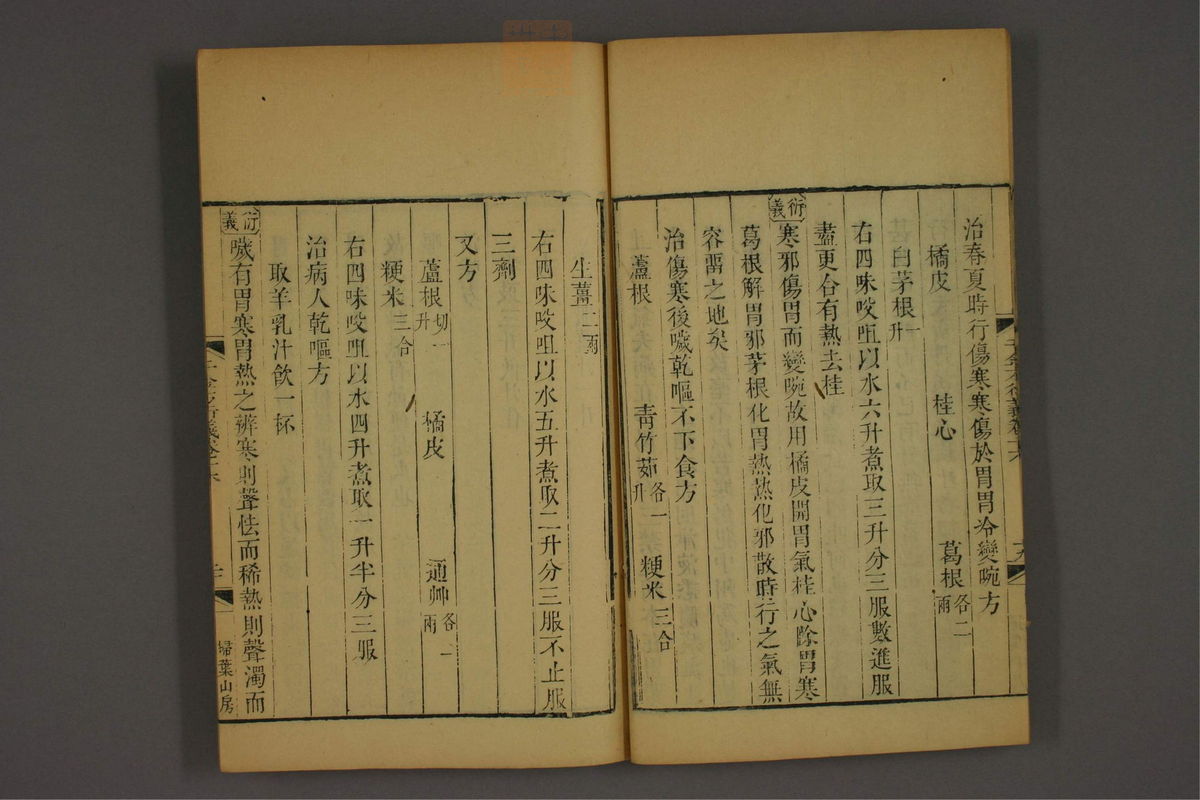 治春夏時行傷寒寒傷於胃胃冷變啘方
橘皮　桂心　葛根各二兩
白茅根一升
右四味㕮咀以水六升煮取三升分三服數進服
盡更合有熱去桂
衍義
寒邪傷胃而變啘故用橘皮開胃氣桂心除胃寒
葛根解胃邪茅根化胃熱熱化邪散時行之氣無
容畱之地矣
治傷寒後噦乾嘔不下食方
蘆根　青竹茹各一升　粳米三合
生薑二兩
右四味㕮咀以水五升煮取二升分三服不止服
三劑
又方
蘆根切一升　橘皮　通艸各一兩
粳米三合
右四味㕮咀以水四升煮取一升半分三服
治病人乾嘔方
取羊乳汁飲一杯
衍義
噦有胃寒胃熱之辨寒則聲怯而稀熱則聲濁而
掃葉山房